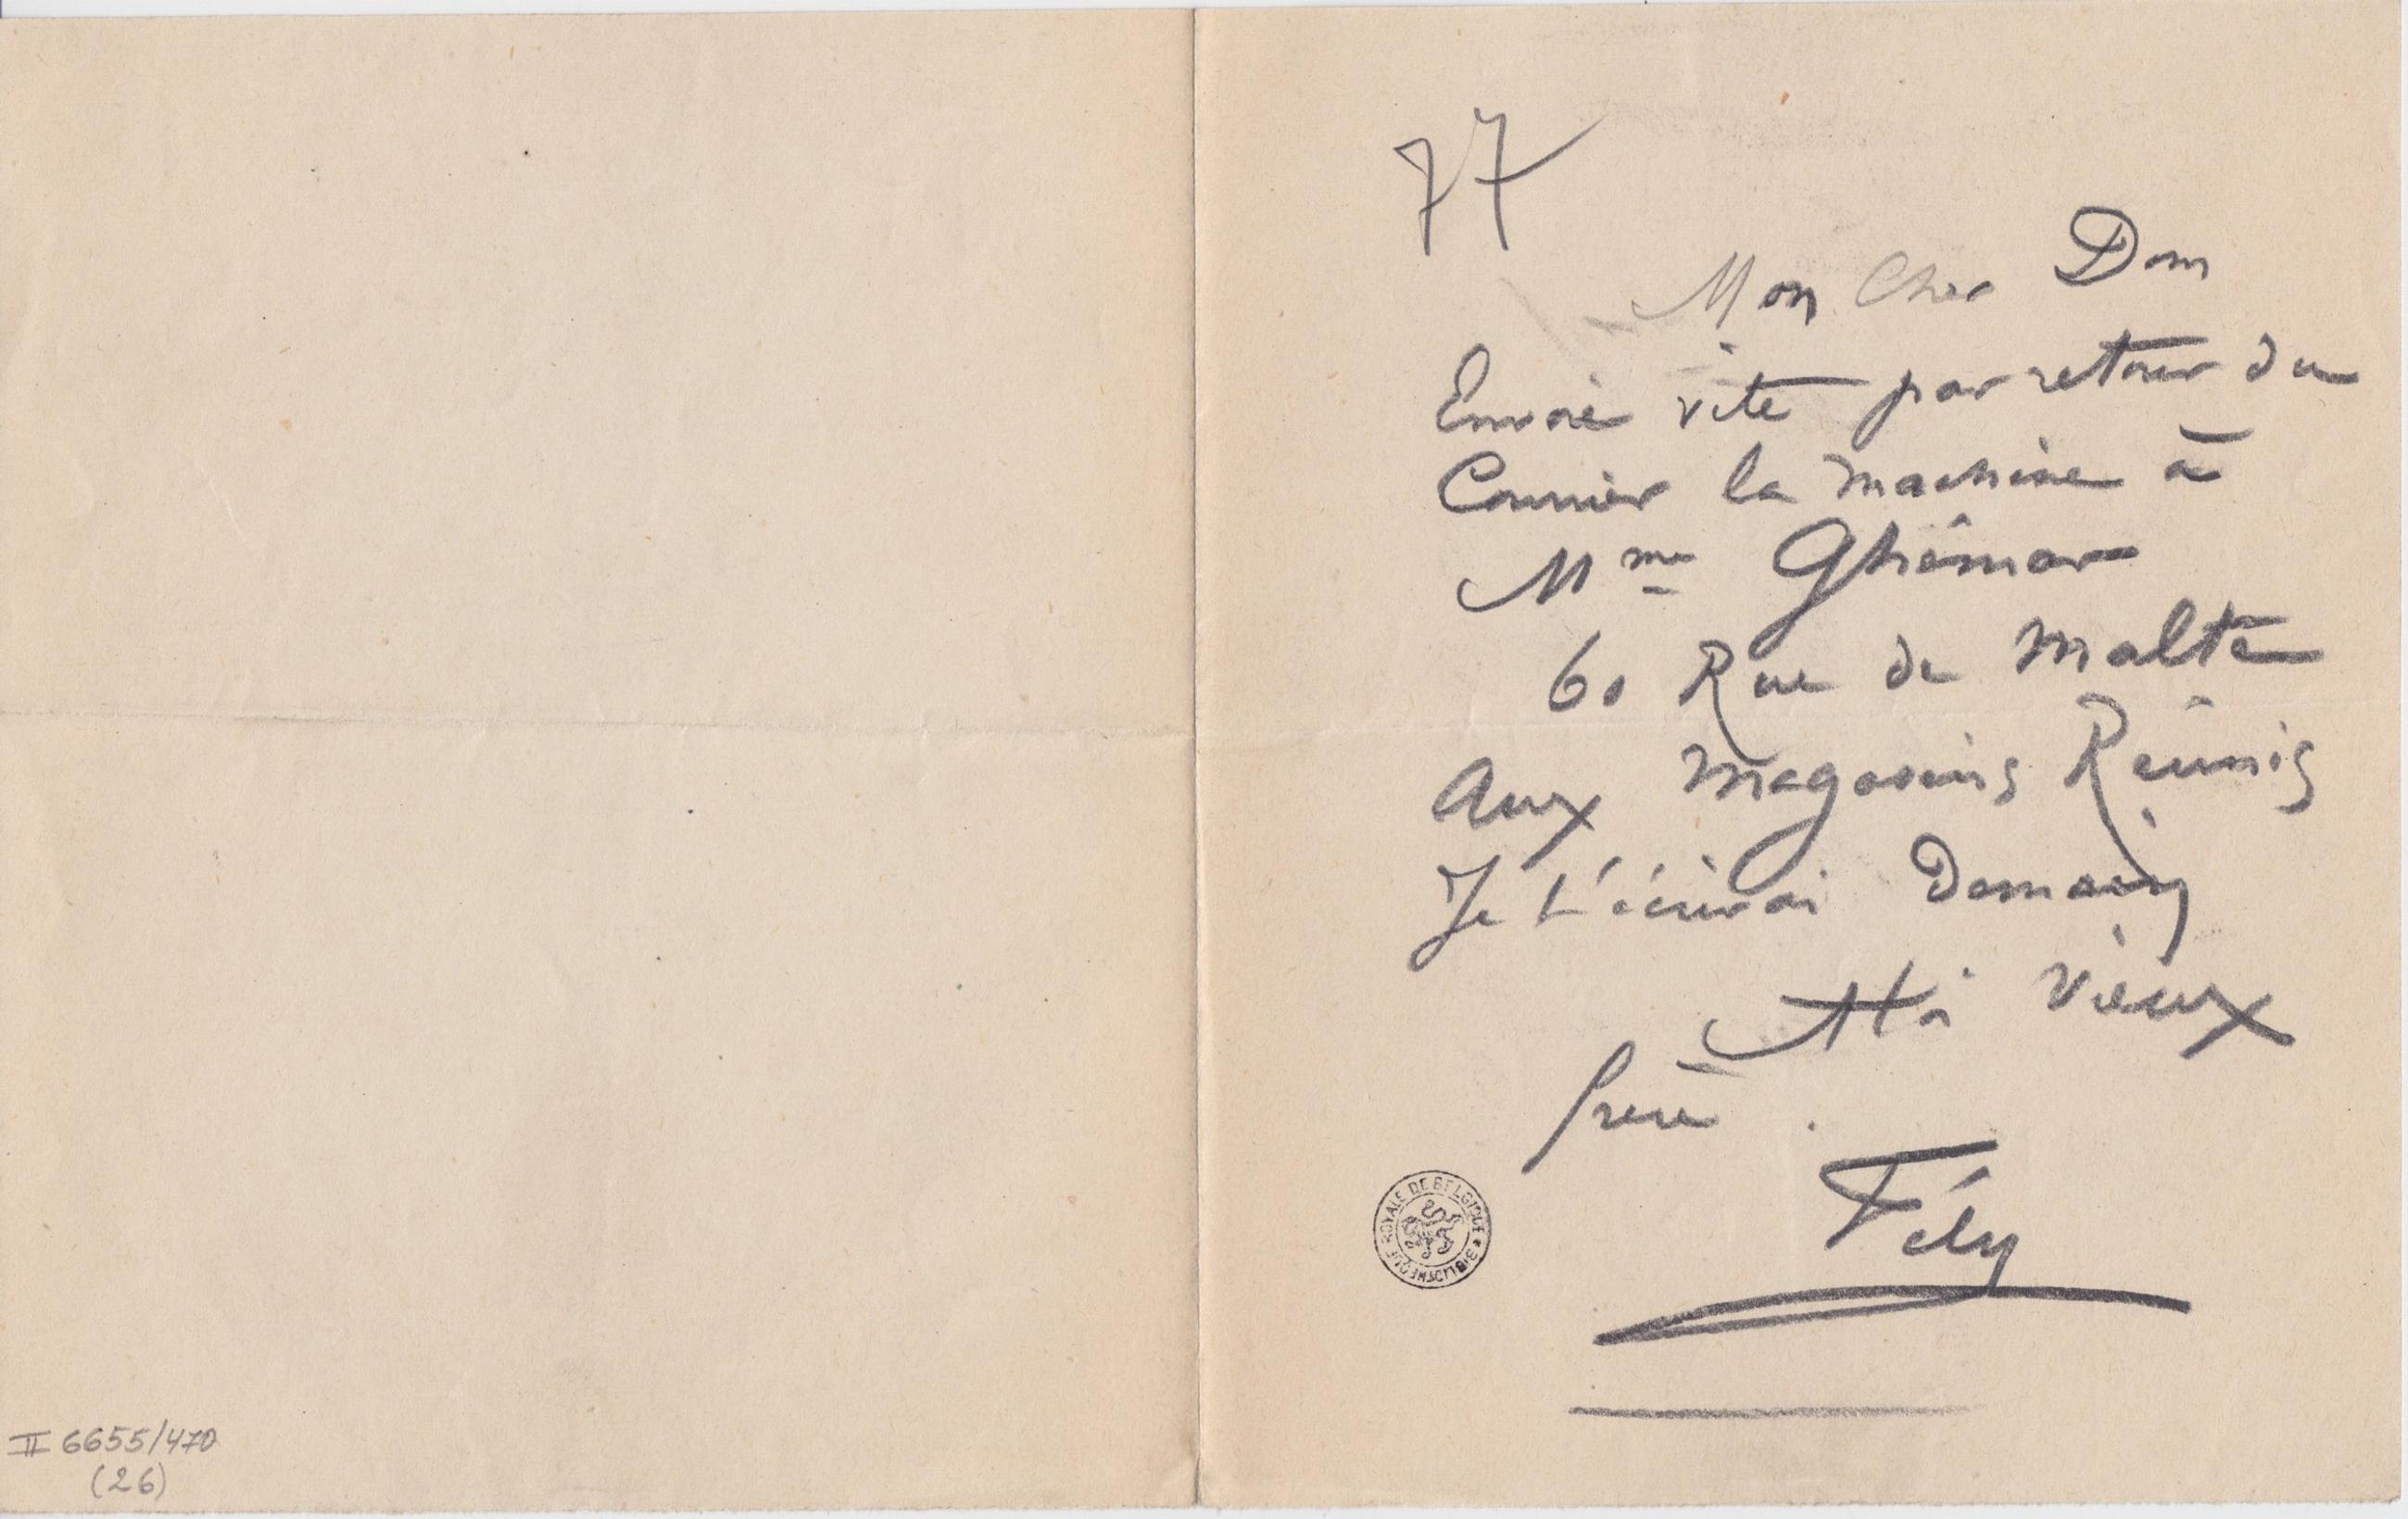 77
Mon Cher Dom
Envoie vite par retour du
Courrier la machine à
Mme Ghémar
60 Rue de Malte
Aux Magasins Réunis
Je t'écrirai Demain
Ma vieux
frère.
Fély
BIBLIOTHEQUE ROYALE DE BELGIQUE *
II 6655/470
(26)